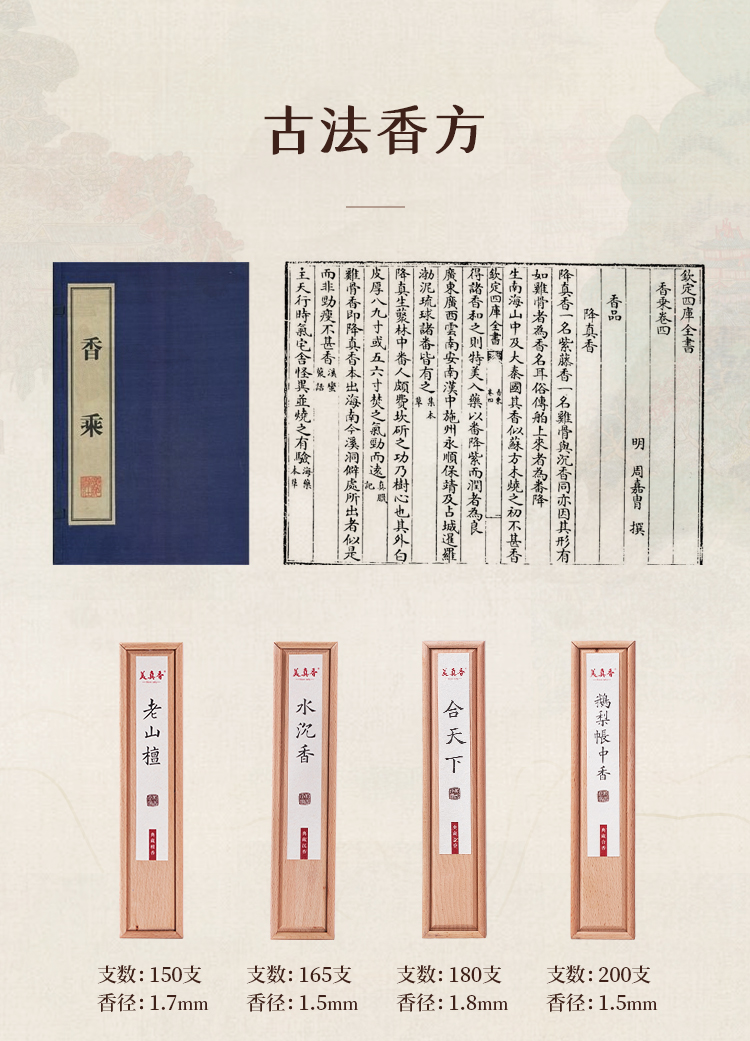 古法香方
香乘
欽定四庫全書
香乘卷四
明 周嘉胄 撰
香品
降真香
降真香一名紫藤香一名雞骨與沉香同亦因其形有
如雞骨者為香名耳俗傳舶上來者為番降
生南海山中及大秦國其香似蘇方木燒之初不甚香
欽定四庫全書
得諸香和之則特美入藥以番降紫而潤者為良
廣東廣西雲南安南漢中施州永順保靖及占城暹羅
渤泥琉球諸番皆有之集本草
降真生藂林中番人頗費坎斫之功乃樹心也其外白
皮厚八九寸或五六寸焚之氣勁而遠真臘記
雞骨香即降真香本出海南今溪洞僻處所出者似是
而非勁瘦不甚香溪蠻叢話
主天行時氣宅舍怪異並燒之有驗海藥本草
美真香
老山檀
典藏檀香
美真香
水沉香
典藏沉香
美真香
合天下
美真香
鵝梨帳中香
典藏合香
支数：150支
香径：1.7mm
支数：165支
香径：1.5mm
支数：180支
香径：1.8mm
支数：200支
香径：1.5mm